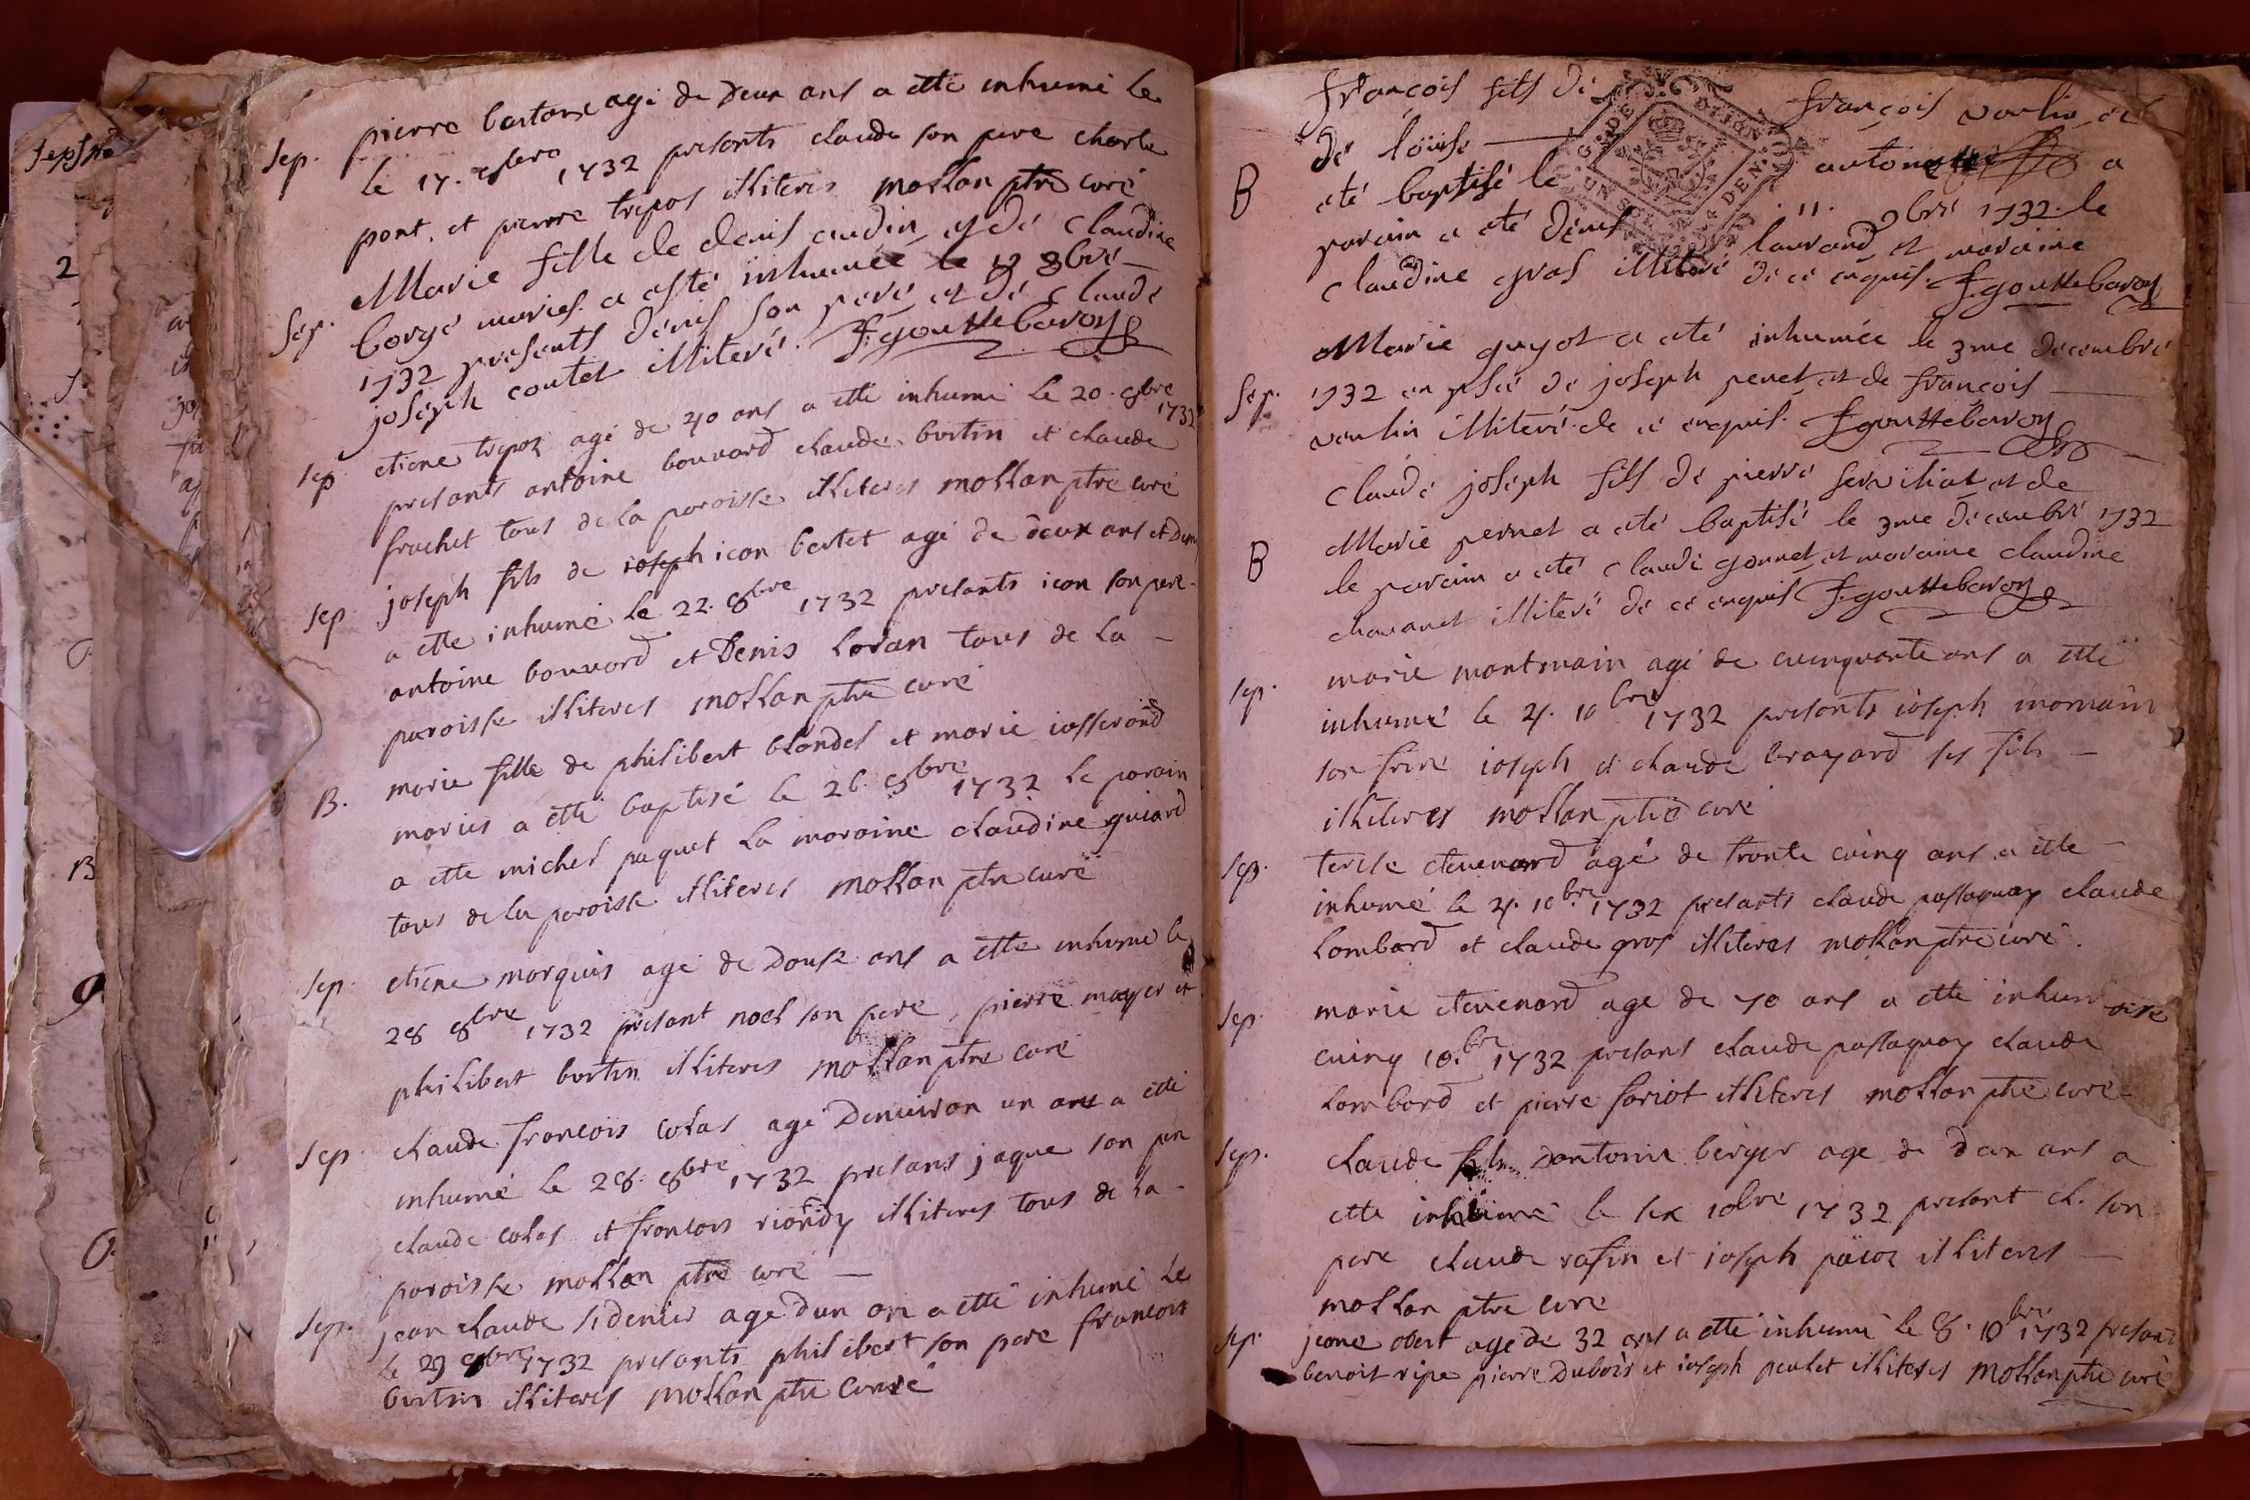 Sep. pierre agé de deux ans a etté inhumé le
le 17. 8bre 1732 presants claude son pere charle
pont. et pierre trepos illiteres mollan ptre curé
Sep. Marie fille de denis audin et de Claudine
borge mariés a esté inhumée le 19 8bre
1732 presents denis son pere et de Claude
joseph coutet illiteré. F. gouttebaron
Sep etiene trepoz agé de 40 ans a etté inhumé le 20. 8bre
1732
presants antoine bouvard claude bertin et claude
frachet tous de la paroisse illiteres mollan ptre curé
Sep joseph fils de joseph jean bertet agé de deux ans et demi
a etté inhumé le 22. 8bre 1732 presants jean son pere
antoine bouvard et Denis loran tous de la
paroisse illiteres mollan ptre curé
B. marie fille de philibert blondel et marie josserand
mariés a etté baptisé le 26. 8bre 1732 le parain
a etté michel paquet la maraine claudine guiard
tous de la paroisse illiteres mollan ptre curé
Sep. etiene marquis agé de Douse ans a etté inhumé le
28 8bre 1732 presant noel son pere, pierre mayer et
philibert bertin illiteres mollan ptre curé
Sep claude françois colas agé Denuiron un ans a etté
inhumé le 28. 8bre 1732 presans jaque son pere
claude colas et francois riondy illiteres tous de la
paroisse mollan ptre curé
Sep. jean claude sidenier agé dun an a etté inhumé le
le 29 8bre 1732 presants philibert son pere francois
bertin illiteres mollan ptre curé
françois fils de françois voulin et
de loüise antoine a
B eté baptisé le 11. 9bre 1732. le
parain a eté denis laurand et maraine
Claudine gras illiteré de ce enquis. F. gouttebaron
GDE DIJON
UN SOL DEN
Marie guyot a eté inhumée le 3me decembre
Sep. 1732 en psce de joseph penet et de françois
voulin illiteré de ce enquis. F. gouttebaron
Claude joseph fils de pierre et de
B Marie pernet a eté baptisé le 3me decembre 1732
le parain a eté Claude gonnet et maraine claudine
chavanet illiteré de ce enquis F. gouttebaron
Sep. marie montmain agé de cuinquante ans a etté
inhumé le 4. 10bre 1732 presants joseph momain
son frere joseph et claude brayard ses fils
illiteres mollan ptre curé
Sep. terese etevenard agé de trante cuinq ans a etté
inhumé le 4. 10bre 1732 presants claude passaquay claude
lombard et claude gros illiteres mollan ptre curé.
Sep. marie etevenard agé de 70 ans a etté inhumé
cuinq 10.bre 1732 presans claude passaquay claude
lombard et pierre foriot illiteres mollan ptre curé
Sep. claude fils dantoine berger agé de deux ans a
etté inhumé le six 10bre 1732 presant cl. son
pere claude rafin et joseph pacoz illiteres
mollan ptre curé
Sep. jeane obert agé de 32 ans a etté inhumé le 8. 10bre 1732 presant
benoit ripe pierre Dubois et joseph peulet illiteres mollan ptre curé